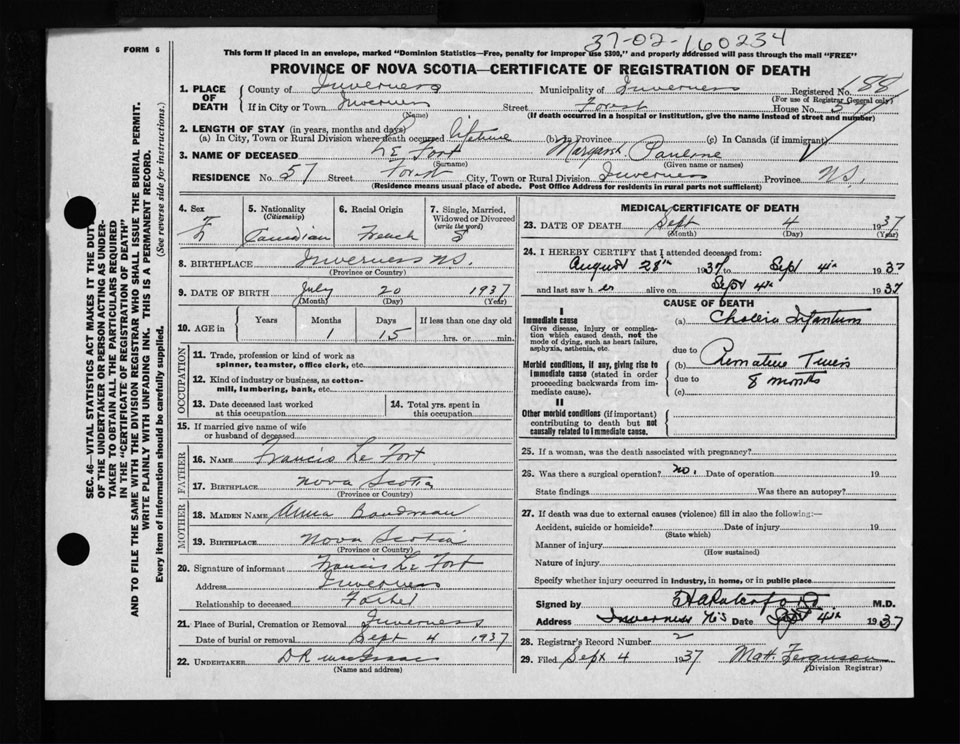 FORM 6
37-02-160234
This form if placed in an envelope, marked "Dominion Statistics—Free, penalty for improper use $300," and properly addressed will pass through the mail "FREE"
PROVINCE OF NOVA SCOTIA—CERTIFICATE OF REGISTRATION OF DEATH
1. PLACE OF DEATH County of Inverness Municipality of Inverness Registered No. 188
(For use of Registrar General only)
If in City or Town Inverness Street Forest House No. 57
(Name) (If death occurred in a hospital or institution, give name instead of street and number)
2. LENGTH OF STAY (in years, months and days)
(a) In City, Town or Rural Division where death occurred Lifetime (b) In Province (c) In Canada (if immigrant)
3. NAME OF DECEASED Le Fort Margaret Pauline
(Surname) (Given name or names)
RESIDENCE No. 57 Street Forest City, Town or Rural Division Inverness Province N.S.
(Residence means usual place of abode. Post Office Address for residents in rural parts not sufficient)
4. Sex F
5. Nationality (Citizenship) Canadian
6. Racial Origin French
7. Single, Married, Widowed or Divorced (write the word) S
8. BIRTHPLACE Inverness N.S.
(Province or Country)
9. DATE OF BIRTH July 20 1937
(Month) (Day) (Year)
10. AGE in Years Months 1 Days 15 If less than one day old hrs. or min.
OCCUPATION
11. Trade, profession or kind of work as spinner, teamster, office clerk, etc.
12. Kind of industry or business, as cotton-mill, lumbering, bank, etc.
13. Date deceased last worked at this occupation
14. Total yrs. spent in this occupation
15. If married give name of wife or husband of deceased
FATHER
16. NAME Francis Le Fort
17. BIRTHPLACE Nova Scotia
(Province or Country)
MOTHER
18. MAIDEN NAME Anna
19. BIRTHPLACE Nova Scotia
(Province or Country)
20. Signature of informant Francis Le Fort
Address Inverness
Relationship to deceased Father
21. Place of Burial, Cremation or Removal Inverness
Date of burial or removal Sept 4 1937
22. UNDERTAKER D R MacIsaac
(Name and address)
MEDICAL CERTIFICATE OF DEATH
23. DATE OF DEATH Sept 4 1937
(Month) (Day) (Year)
24. I HEREBY CERTIFY that I attended deceased from:
August 28th 1937 to Sept 4th 1937
and last saw her alive on Sept 4th 1937
CAUSE OF DEATH
I
Immediate cause
Give disease, injury or complication which caused death, not the mode of dying, such as heart failure, asphyxia, asthenia, etc.
(a) Cholera Infantum
due to
Morbid conditions, if any, giving rise to immediate cause (stated in order proceeding backwards from immediate cause).
(b) Premature Twins
due to 8 months
(c)
II
Other morbid conditions (if important) contributing to death but not causally related to immediate cause.
25. If a woman, was the death associated with pregnancy?
26. Was there a surgical operation? no. Date of operation 19
State findings Was there an autopsy?
27. If death was due to external causes (violence) fill in also the following:—
Accident, suicide or homicide? Date of injury 19
(State which)
Manner of injury
(How sustained)
Nature of injury
Specify whether injury occurred in industry, in home, or in public place
Signed by M.D.
Address Inverness N.S. Date Sept 4th 1937
28. Registrar's Record Number 2
29. Filed Sept 4 1937 Matt Ferguson
(Division Registrar)
SEC. 46—VITAL STATISTICS ACT MAKES IT THE DUTY
OF THE UNDERTAKER OR PERSON ACTING AS UNDER-
TAKER TO OBTAIN ALL THE PARTICULARS REQUIRED
IN THE "CERTIFICATE OF REGISTRATION OF DEATH"
AND TO FILE THE SAME WITH THE DIVISION REGISTRAR WHO SHALL ISSUE THE BURIAL PERMIT.
WRITE PLAINLY WITH UNFADING INK. THIS IS A PERMANENT RECORD.
Every item of information should be carefully supplied. (See reverse side for instructions.)